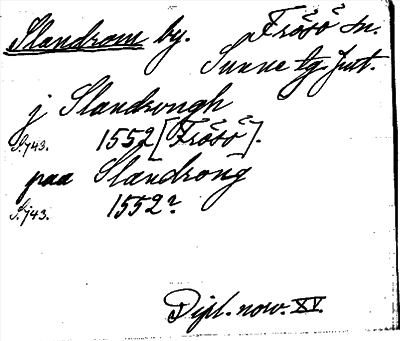 Slandrom by. Frösö sn.
Sunne tg. Jmt.
j Slandrongh
S. 743. 1552 [Frösö].
paa Slandrong
S. 743. 1552?
Dipl. norv. XV.